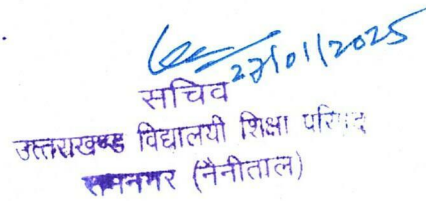 27/01/2025
सचिव
उत्तराखण्ड विद्यालयी शिक्षा परिषद
रामनगर (नैनीताल)